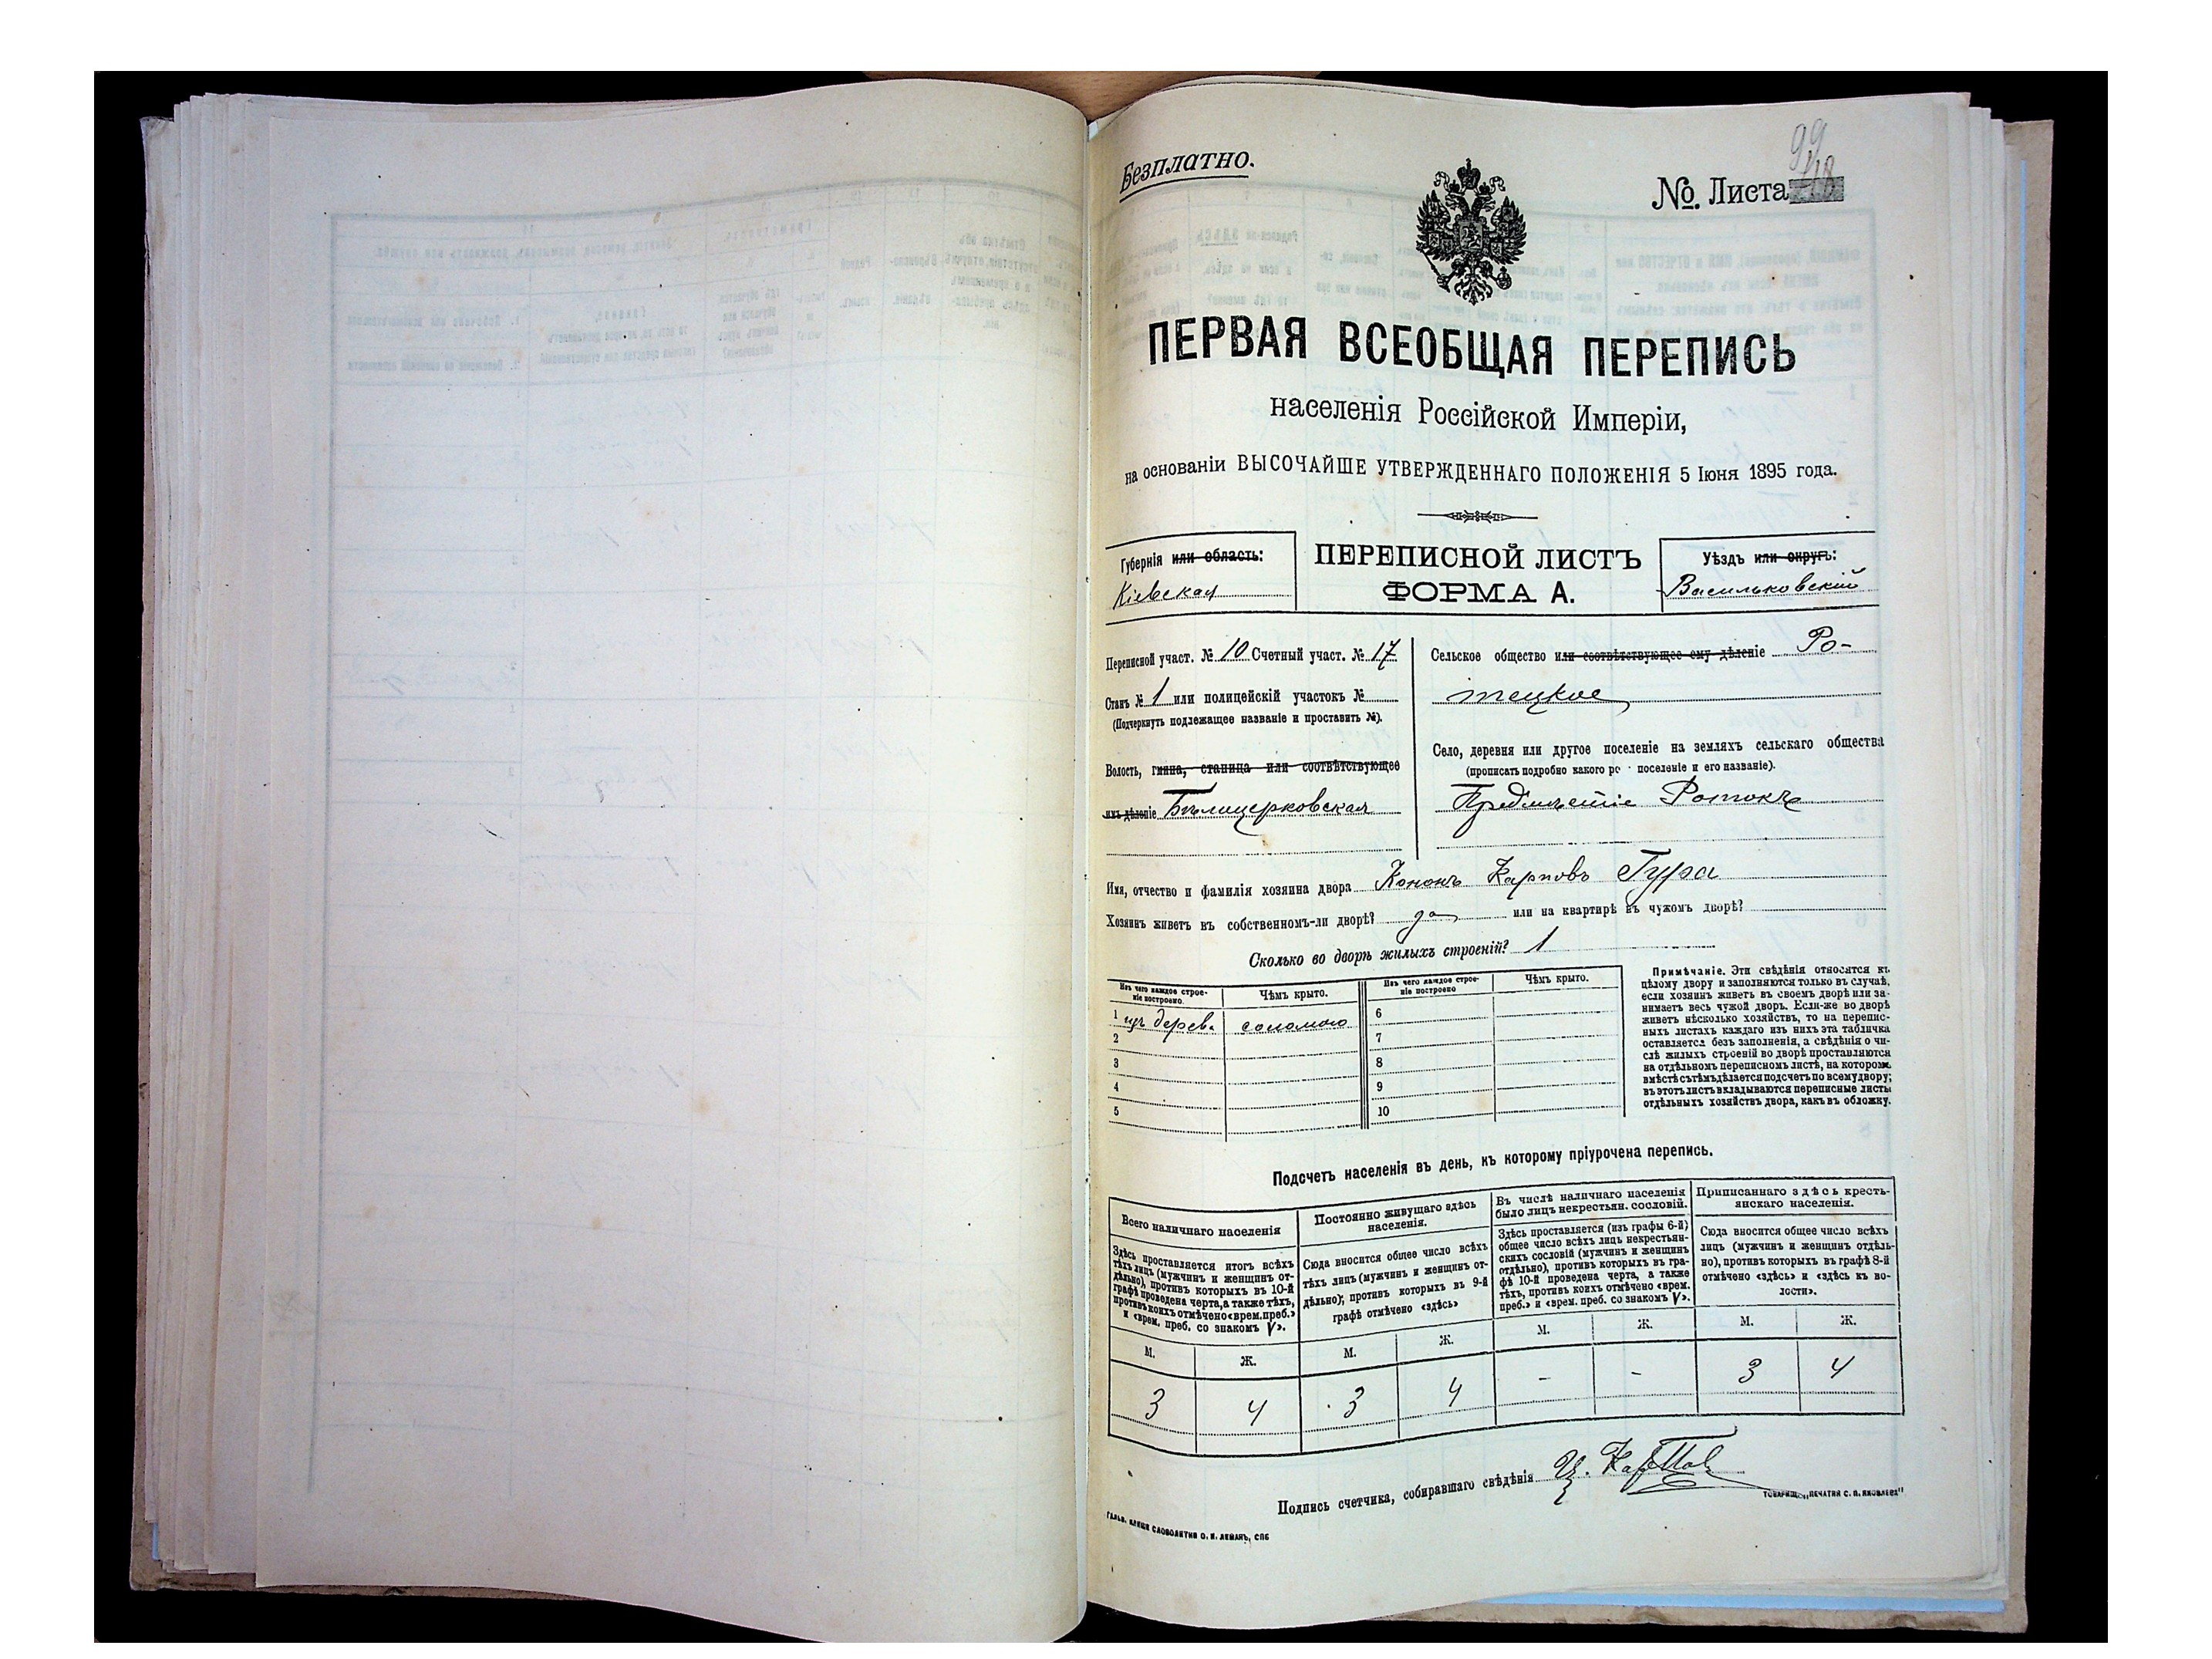 Безплатно.
99
№. Листа 48
ПЕРВАЯ ВСЕОБЩАЯ ПЕРЕПИСЬ
населенія Россійской Имперіи,
на основаніи ВЫСОЧАЙШЕ УТВЕРЖДЕННАГО ПОЛОЖЕНІЯ 5 Іюня 1895 года.
Губернія или область:
Кіевская
ПЕРЕПИСНОЙ ЛИСТЪ
ФОРМА А.
Уѣздъ или округъ:
Васильковскій
Переписной участ. № 10 Счетный участ. № 17
Станъ № 1 или полицейскій участокъ №
(Подчеркнуть подлежащее названіе и проставить №).
Волость, гмина, станица или соотвѣтствующее
имъ дѣленіе Бѣлоцерковская
Сельское общество или соотвѣтствующее ему дѣленіе Ро-
тецкое
Село, деревня или другое поселеніе на земляхъ сельскаго общества
(прописать подробно какого ро поселеніе и его названіе).
Предмѣстіе Ротокъ
Имя, отчество и фамилія хозяина двора Кононъ Карповъ Гура
Хозяинъ живетъ въ собственномъ-ли дворѣ? да или на квартирѣ въ чужомъ дворѣ?
Сколько во дворѣ жилыхъ строеній? 1
Изъ чего каждое строе-
ніе построено.
Чѣмъ крыто.
Изъ чего каждое строе-
ніе построено
Чѣмъ крыто.
1 изъ дерев. соломою
2
3
4
5
6
7
8
9
10
Примѣчаніе. Эти свѣдѣнія относятся къ
цѣлому двору и заполняются только въ случаѣ,
если хозяинъ живетъ въ своемъ дворѣ или за-
нимаетъ весь чужой дворъ. Если-же во дворѣ
живетъ нѣсколько хозяйствъ, то на перепис-
ныхъ листахъ каждаго изъ нихъ эта табличка
оставляется безъ заполненія, а свѣдѣнія о чи-
слѣ жилыхъ строеній во дворѣ проставляются
на отдѣльномъ переписномъ листѣ, на которомъ
вмѣстѣ съ тѣмъ дѣлается подсчетъ по всему двору;
въ этотъ листъ вкладываются переписные листы
отдѣльныхъ хозяйствъ двора, какъ въ обложку.
Подсчетъ населенія въ день, къ которому пріурочена перепись.
Всего наличнаго населенія
Здѣсь проставляется итогъ всѣхъ
тѣхъ лицъ (мужчинъ и женщинъ от-
дѣльно), противъ которыхъ въ 10-й
графѣ проведена черта, а также тѣхъ,
противъ коихъ отмѣчено «врем. преб.»
и «врем. преб. со знакомъ V».
Постоянно живущаго здѣсь
населенія.
Сюда вносится общее число всѣхъ
тѣхъ лицъ (мужчинъ и женщинъ от-
дѣльно), противъ которыхъ въ 9-й
графѣ отмѣчено «здѣсь»
Въ числѣ наличнаго населенія
было лицъ некрестьян. сословій.
Здѣсь проставляется (изъ графы 6-й)
общее число всѣхъ лицъ некрестьян-
скихъ сословій (мужчинъ и женщинъ
отдѣльно), противъ которыхъ въ гра-
фѣ 10-й проведена черта, а также
тѣхъ, противъ коихъ отмѣчено «врем.
преб.» и «врем. преб. со знакомъ V».
Приписаннаго здѣсь кресть-
янскаго населенія.
Сюда вносится общее число всѣхъ
лицъ (мужчинъ и женщинъ отдѣль-
но), противъ которыхъ въ графѣ 8-й
отмѣчено «здѣсь» и «здѣсь къ во-
лости».
М. Ж. М. Ж. М. Ж. М. Ж.
3 4 3 4 - - 3 4
Подпись счетчика, собиравшаго свѣдѣнія
ГАЛЬВ. КЛИШЕ СЛОВОЛИТНИ О. И. ЛЕМАНЪ, СПБ
ТОВАРИЩ. „ПЕЧАТНЯ С. П. ЯКОВЛЕВА"